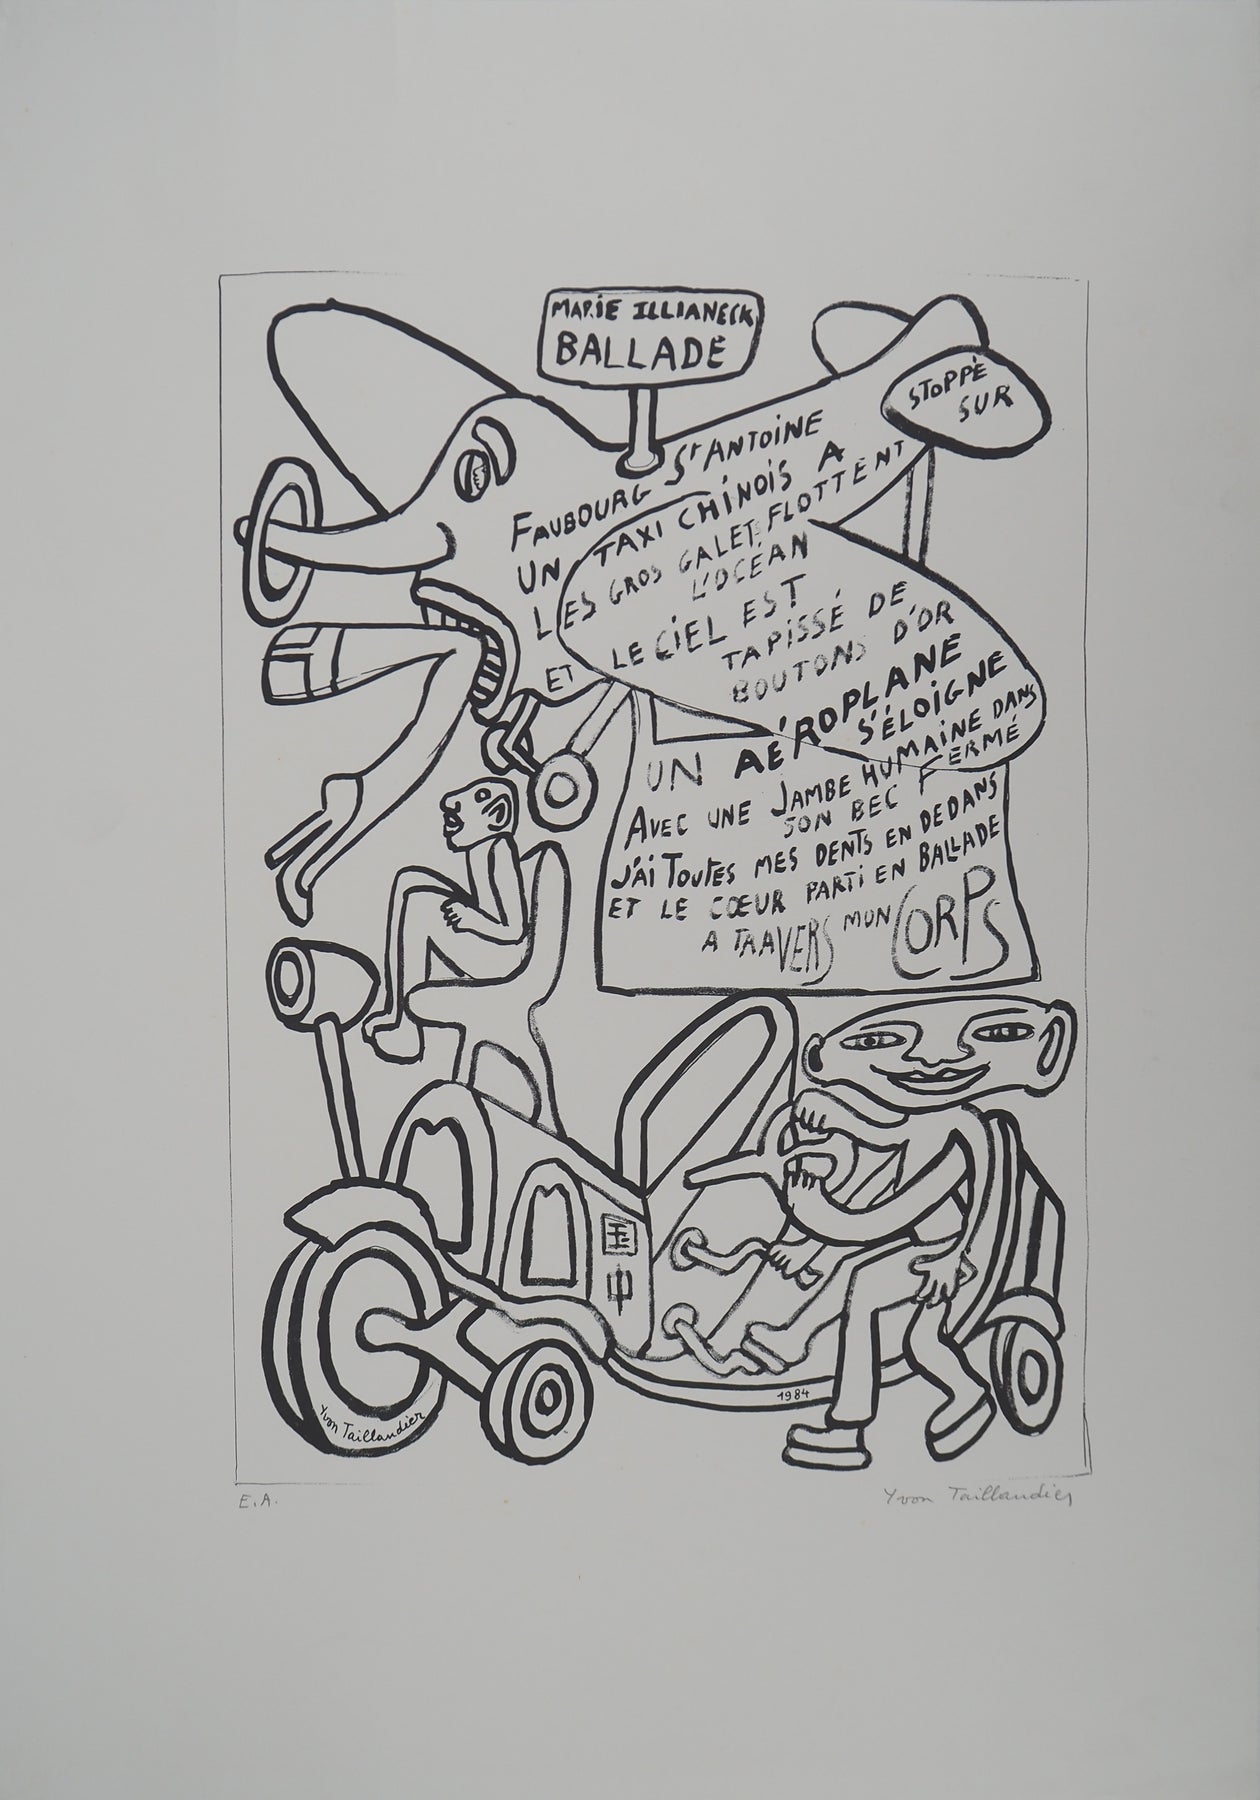 MARIE ILLIANECK
BALLADE
FAUBOURG St ANTOINE
UN TAXI CHINOIS A STOPPÉ
SUR
LES GROS GALETS FLOTTENT
L'OCÉAN
ET LE CIEL EST
TAPISSÉ DE
BOUTONS D'OR
UN AÉROPLANE
S'ÉLOIGNE
AVEC UNE JAMBE HUMAINE DANS
SON BEC FERMÉ
J'AI TOUTES MES DENTS EN DEDANS
ET LE CŒUR PARTI EN BALLADE
A TRAVERS MON CORPS
国
中
1984
Yvon Taillandier
E.A.
Yvon Taillandier